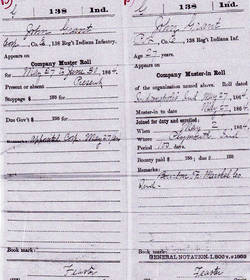 138 Ind.
John Grant
Corp, Co. E, 138 Reg't Indiana Infantry.
Company Muster Roll
for May 27 to June 30, 1864.
Present or absent Present
Stoppage, $ 100 for
Due Gov't $ 100 for
appointed Corp May 27/64
Book mark:
138 Ind.
John Grant
Co. E, 138 Reg't Indiana Inf.
Age 27 years.
Company Muster-in Roll
of the organization named above. Roll dated
Indianapolis Ind May 27, 1864.
Muster-in to date May 27, 1864.
Joined for duty and enrolled:
When May 2, 1864.
Where Plymouth Ind
Period 100 days.
Bounty paid $ 100; due $ 100
Remarks:
Ind.
Book mark:
GENERAL NOTATION